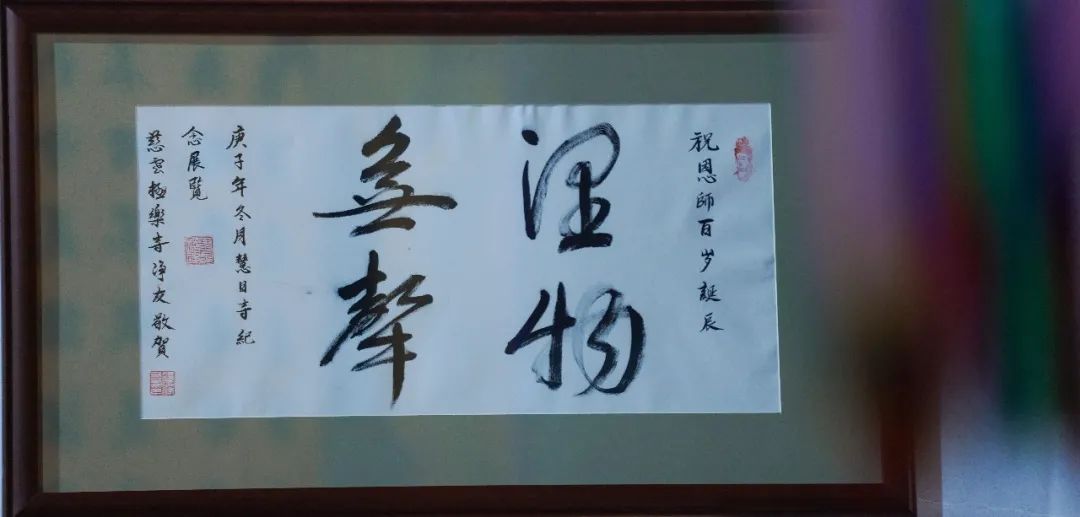 祝恩師百岁誕辰
潤物
無聲
庚子年冬月慧日寺紀
念展覧
慈雲極樂寺净友敬賀